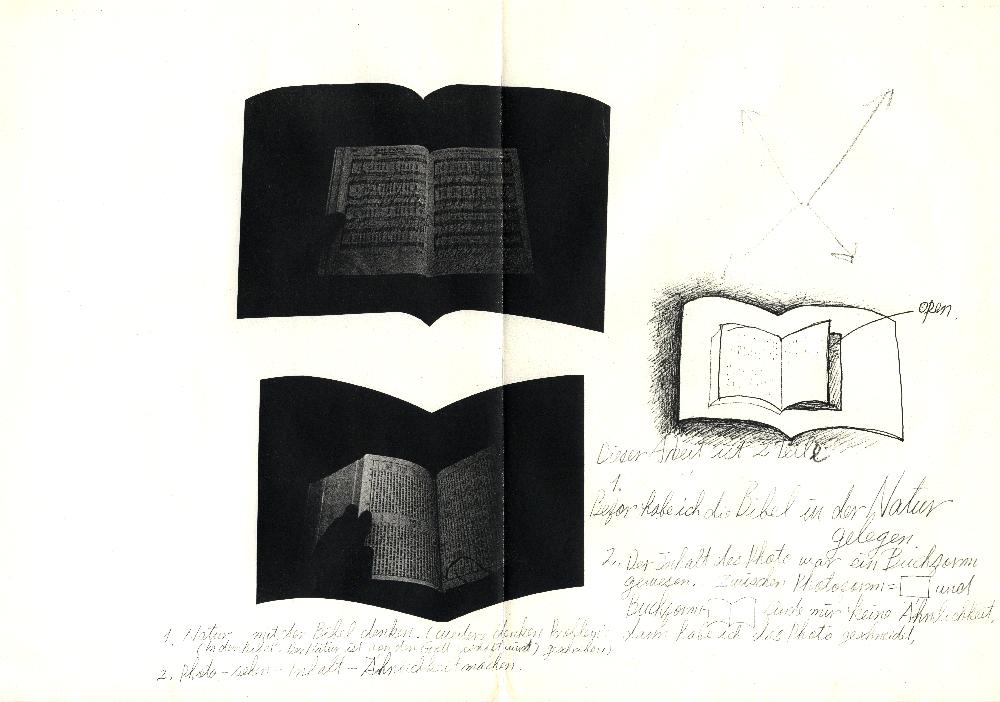 open.
Dieser Arbeit ist 2 Teile
1.
Bevor habe ich die Bibel in der Natur
gelegen
2. Der Inhalt des Photo war ein Buchform
gewesen. Zwischen Photoform = und
Buchform finde mir keine Ähnlichkeit,
dann habe ich das Photo geschneidt,
1. Natur mit der Bibel denken. (
(In der Bibel. Der Natur ist von den Gott
2. Photo - sehn - Inhalt - Ähnlichkeit machen.